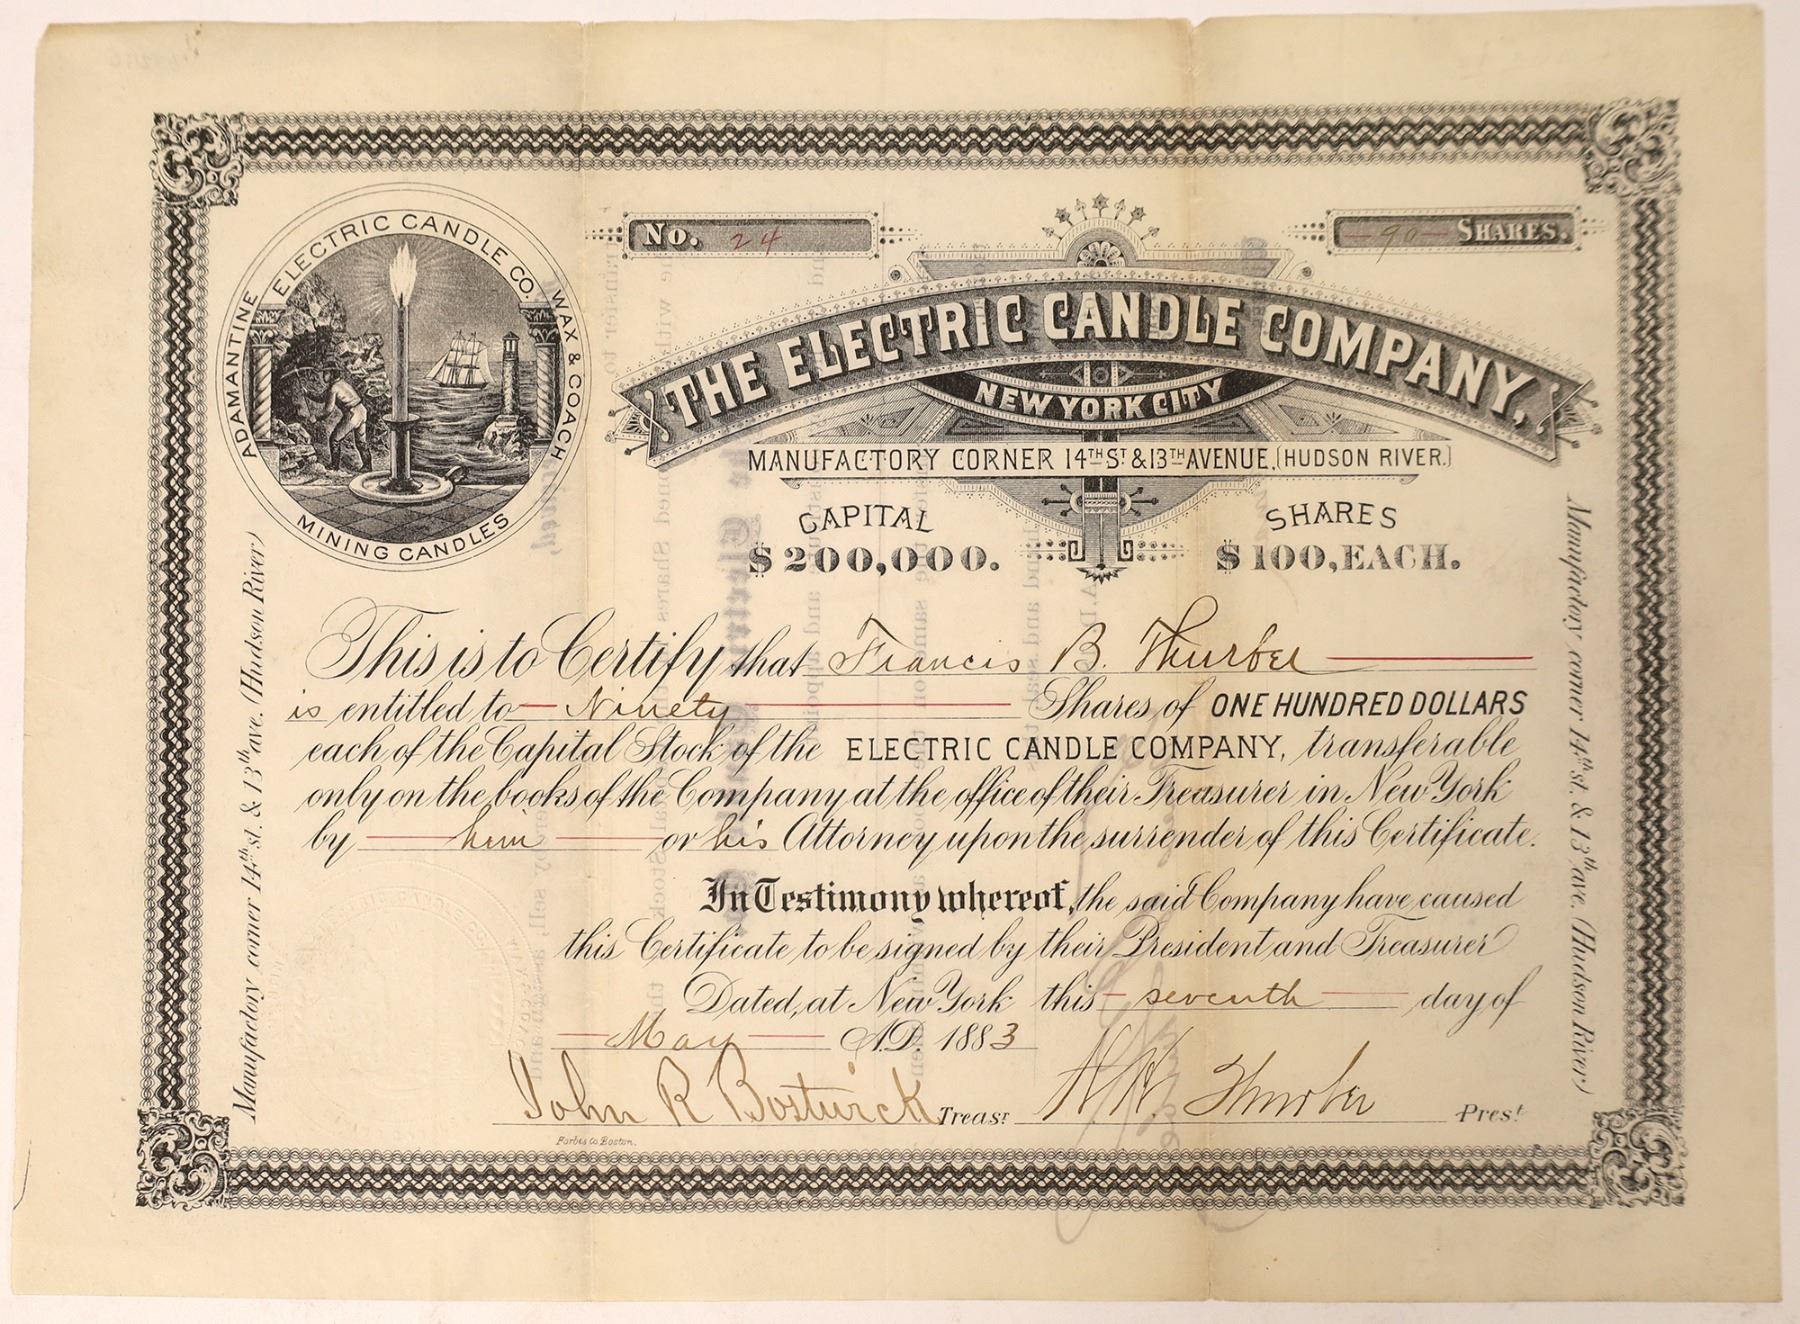 ELECTRIC CANDLE CO.
ADAMANTINE
WAX & COACH
MINING CANDLES
No. 24
90 SHARES.
THE ELECTRIC CANDLE COMPANY,
NEW YORK CITY
MANUFACTORY CORNER 14TH ST & 13TH AVENUE, (HUDSON RIVER.)
CAPITAL
$200,000.
SHARES
$100, EACH.
This is to Certify that Francis B. Thurber
is entitled to Ninety Shares of ONE HUNDRED DOLLARS
each of the Capital Stock of the ELECTRIC CANDLE COMPANY, transferable
only on the books of the Company at the office of their Treasurer in New York
by him or his Attorney upon the surrender of this Certificate.
In Testimony whereof, the said Company have caused
this Certificate to be signed by their President and Treasurer
Dated, at New York this seventh day of
May A.D. 1883
John R Bostwick Treasr H. K. Thurber Prest
Forbes Co. Boston.
Manufactory corner 14th st. & 13th ave. (Hudson River)
Manufactory corner 14th st. & 13th ave. (Hudson River)